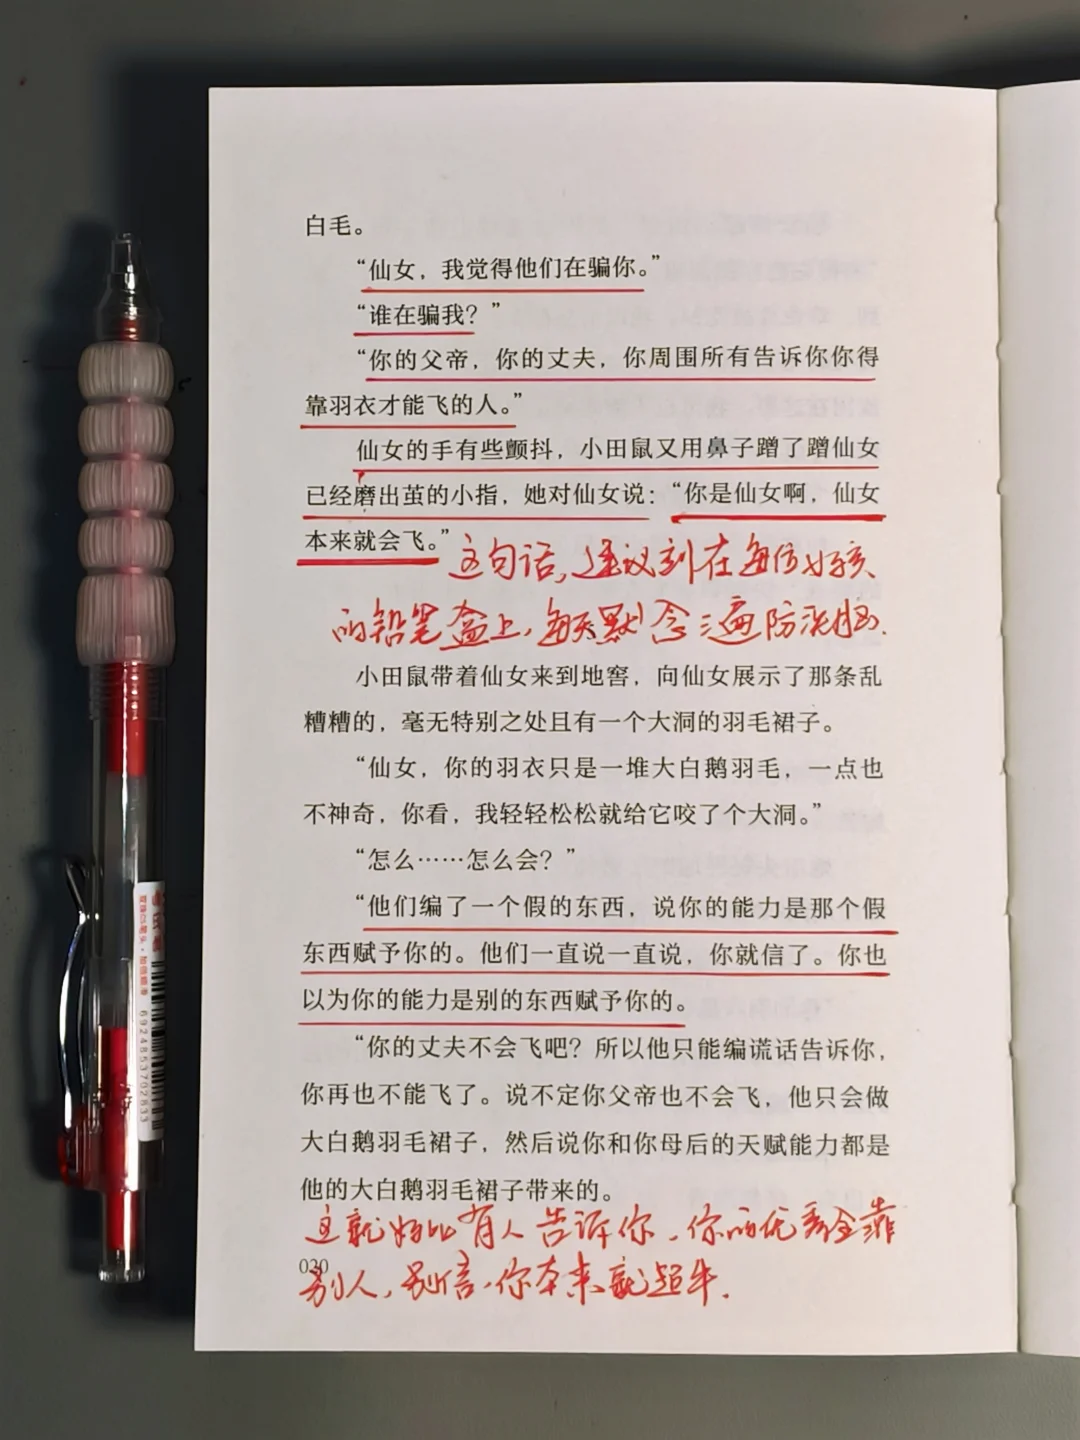 白毛。
“仙女，我觉得他们在骗你。”
“谁在骗我？”
“你的父帝，你的丈夫，你周围所有告诉你你得
靠羽衣才能飞的人。”
仙女的手有些颤抖，小田鼠又用鼻子蹭了蹭仙女
已经磨出茧的小指，她对仙女说：“你是仙女啊，仙女
本来就会飞。”
这句话，建议刻在每位女孩
的铅笔盒上，每天默念三遍防洗脑.
小田鼠带着仙女来到地窖，向仙女展示了那条乱
糟糟的，毫无特别之处且有一个大洞的羽毛裙子。
“仙女，你的羽衣只是一堆大白鹅羽毛，一点也
不神奇，你看，我轻轻松松就给它咬了个大洞。”
“怎么……怎么会？”
“他们编了一个假的东西，说你的能力是那个假
东西赋予你的。他们一直说一直说，你就信了。你也
以为你的能力是别的东西赋予你的。
“你的丈夫不会飞吧？所以他只能编谎话告诉你，
你再也不能飞了。说不定你父帝也不会飞，他只会做
大白鹅羽毛裙子，然后说你和你母后的天赋能力都是
他的大白鹅羽毛裙子带来的。
这就好比有人告诉你，你的优秀全靠
别人，别信，你本来就超牛.
020
6924853702833